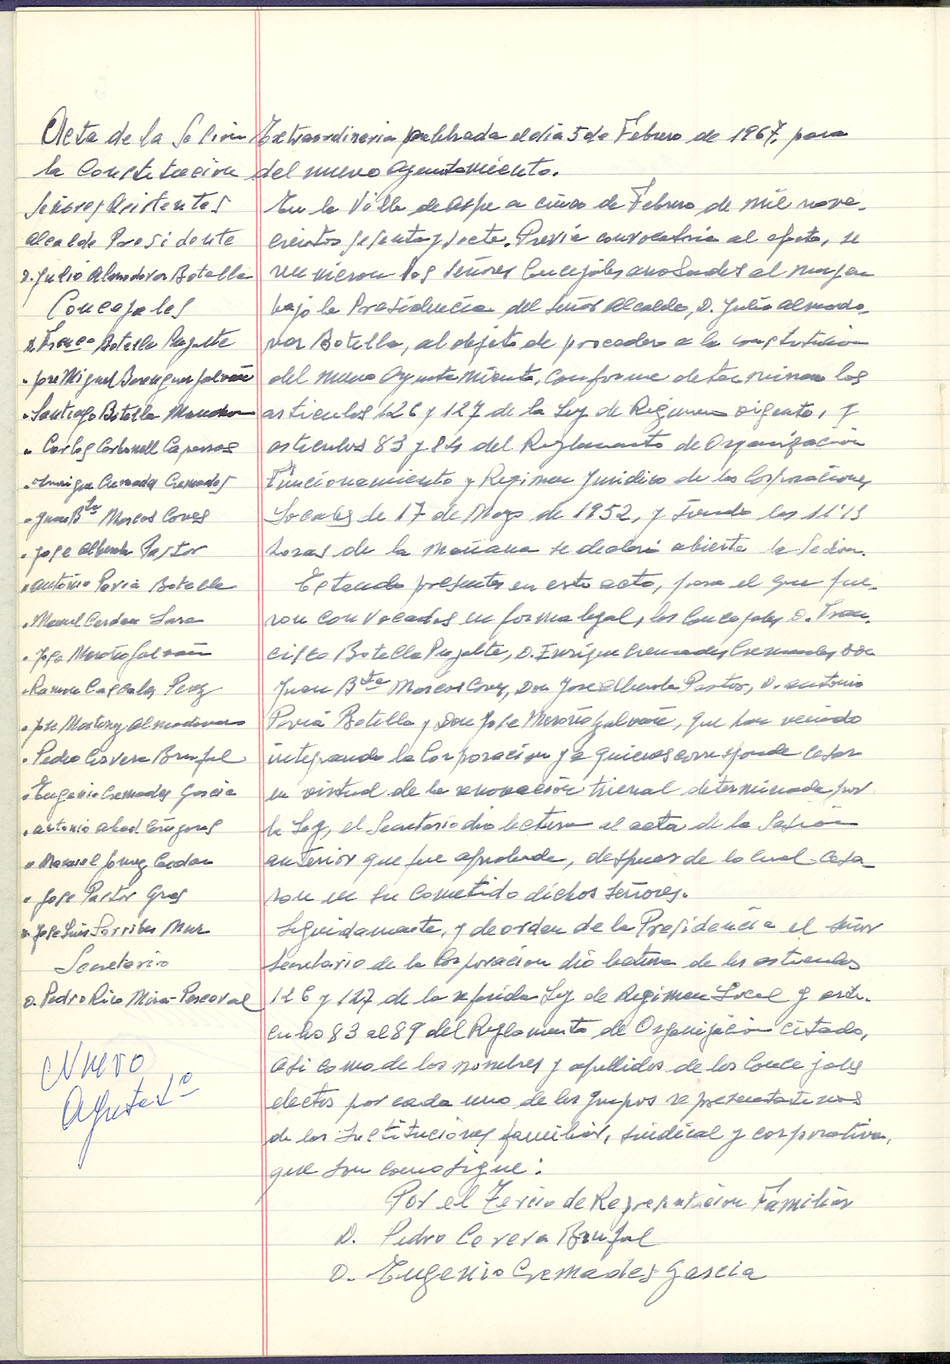 Acta de la Sesion Extraordinaria celebrada el dia 5 de Febrero de 1967, para
la Constitucion del nuevo Ayuntamiento.
Señores Asistentes
Alcalde Presidente
D. Julio Almodovar Botella
Concejales
D. Franco Botella Pujalte
" Jose Miguel Berenguer Galvañ
" Santiago Botella
" Carlos Carbonell Caparros
" Enrique Cremades Cremades
" Juan Bta Marcos Cores
" Jose Alberola Pastor
" Antonio Pavia Botella
" Manuel Cerdan Lara
" Jose Moroño Galvañ
" Ramon Cascales Perez
" Jose Martinez Almodovar
" Pedro Cervera Brufal
" Eugenio Cremades Garcia
" Antonio Abad
" Manuel Cerdan
" Jose Pastor Gras
" Jose Luis Sarribes Mur
Secretario
D. Pedro Rico Mira-Perceval
Nuevo
Ayuntº
En la Villa de Aspe a cinco de Febrero de mil nove-
cientos sesenta y siete. Previa convocatoria al efecto, se
reunieron los Señores Concejales anotados al margen
bajo la Presidencia del Señor Alcalde, D. Julio Almodo-
var Botella, al objeto de proceder a la constitucion
del nuevo Ayuntamiento, conforme determinan los
articulos 126 y 127 de la Ley de Regimen vigente, y
articulos 83 y 84 del Reglamento de Organizacion
Funcionamiento y Regimen Juridico de las Corporaciones
Locales de 17 de Mayo de 1952, y siendo las 11'15
horas de la mañana se declara abierta la Sesion.
Estando presentes en este acto, para el que fue-
ron convocados en forma legal, los Concejales D. Fran-
cisco Botella Pujalte, D. Enrique Cremades Cremades Don
Juan Bta Marcos Cores, Don Jose Alberola Pastor, D. Antonio
Pavia Botella y Don Jose Moroño Galvañ, que han venido
integrando la Corporacion y a quienes corresponde cesar
en virtud de la renovacion trienal determinada por
la Ley, el Secretario dio lectura al acta de la Sesion
anterior que fue aprobada, despues de lo cual cesa-
ron en su cometido dichos señores.
Seguidamente, y de orden de la Presidencia el señor
Secretario de la Corporacion dio lectura de los articulos
126 y 127 de la referida Ley de Regimen Local y arti-
culos 83 al 89 del Reglamento de Organizacion citado,
asi como de los nombres y apellidos de los Concejales
electos por cada uno de los grupos representativos
de las Instituciones familiar, sindical y corporativa,
que son como sigue:
Por el Tercio de Representacion Familiar
D. Pedro Cervera Brufal
D. Eugenio Cremades Garcia